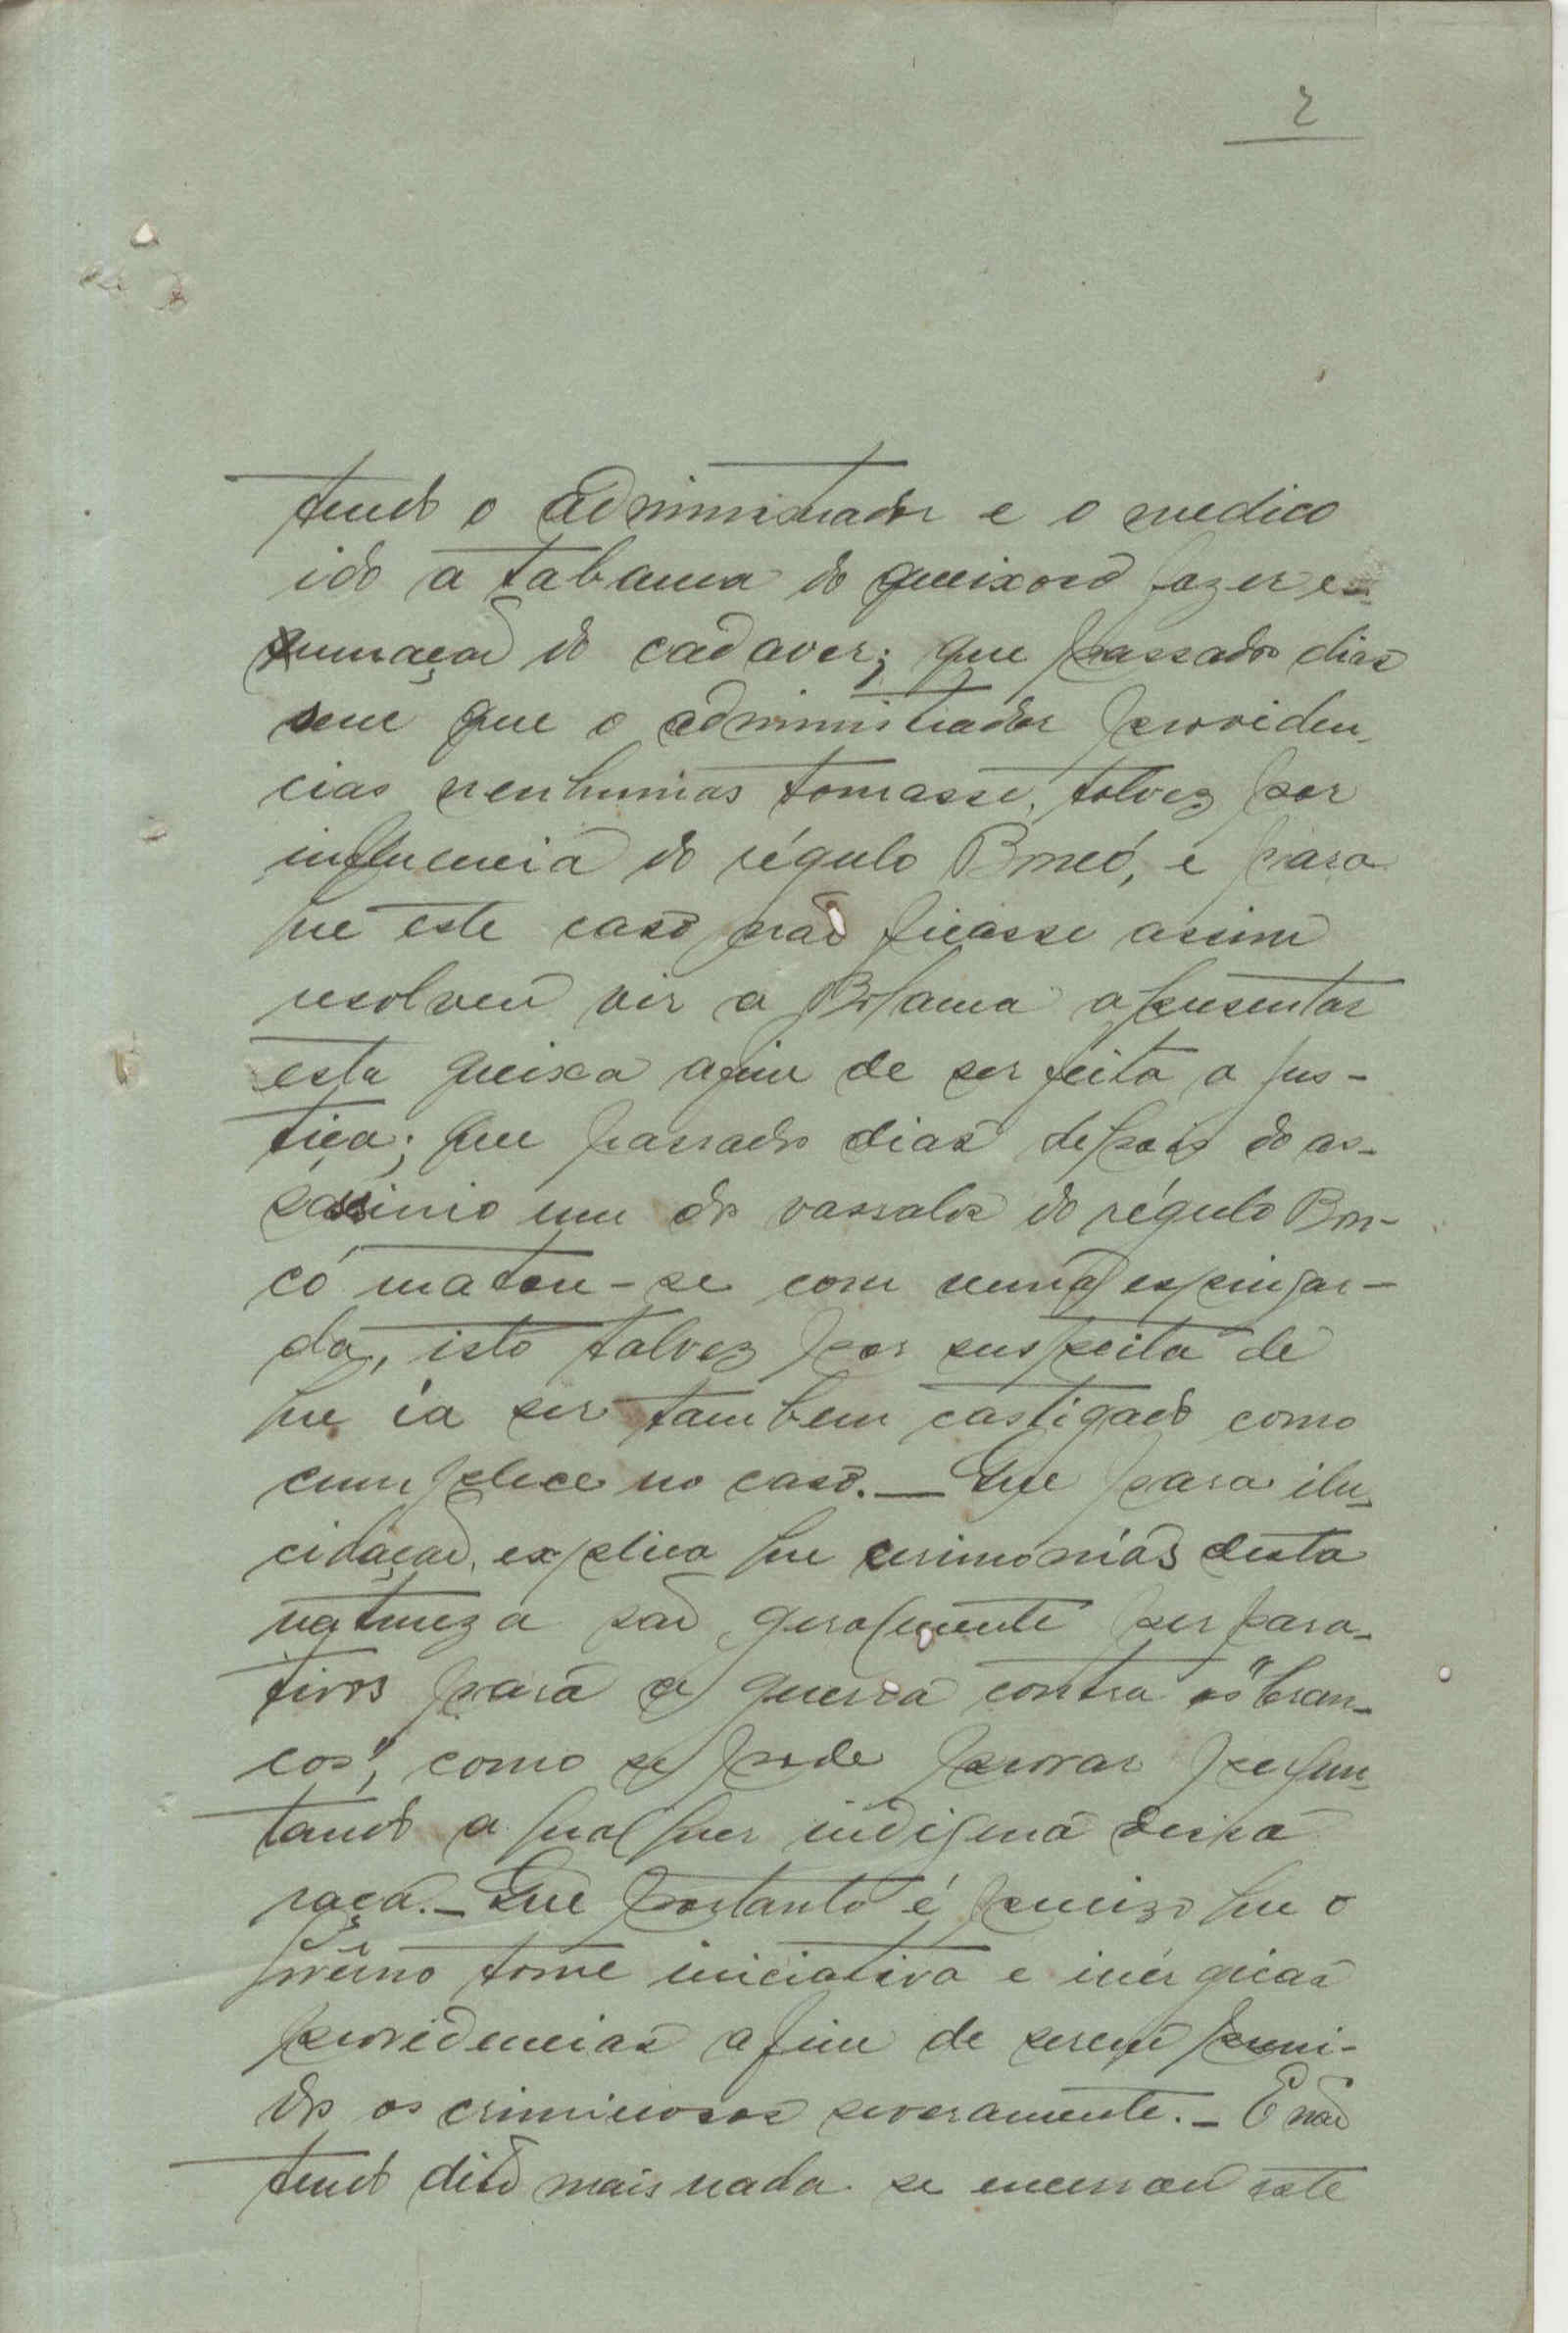 2
tendo o administrador e o medico
ido a tabanca do queixoso fazer e-
xumação do cadaver; que passados dias
sem que o administrador providen-
cias nenhumas tomasse, talvez por
influencia do régulo Boncó, e para
que este caso não ficasse assim
resolveu vir a Bolama apresentar
esta queixa afim de ser feita a jus-
tiça; que passados dias depois do as-
sassinio um dos vassalos do régulo Bon-
có matou-se com uma espingar-
da, isto talvez por suspeita de
que ia ser tambem castigado como
cumplice no caso. — Que para ilu-
cidação, explica que cerimonias desta
natureza são geralmente perpara-
tivos para a guerra contra os "bran-
cos", como se pode provar pergun-
tando a qualquer indigena dessa
raça. — Que portanto é preciso que o
govêrno tome iniciativa e inérgicas
providencias afim de serem puni-
dos os criminosos severamente. — E não
tendo dito mais nada se encerrou este